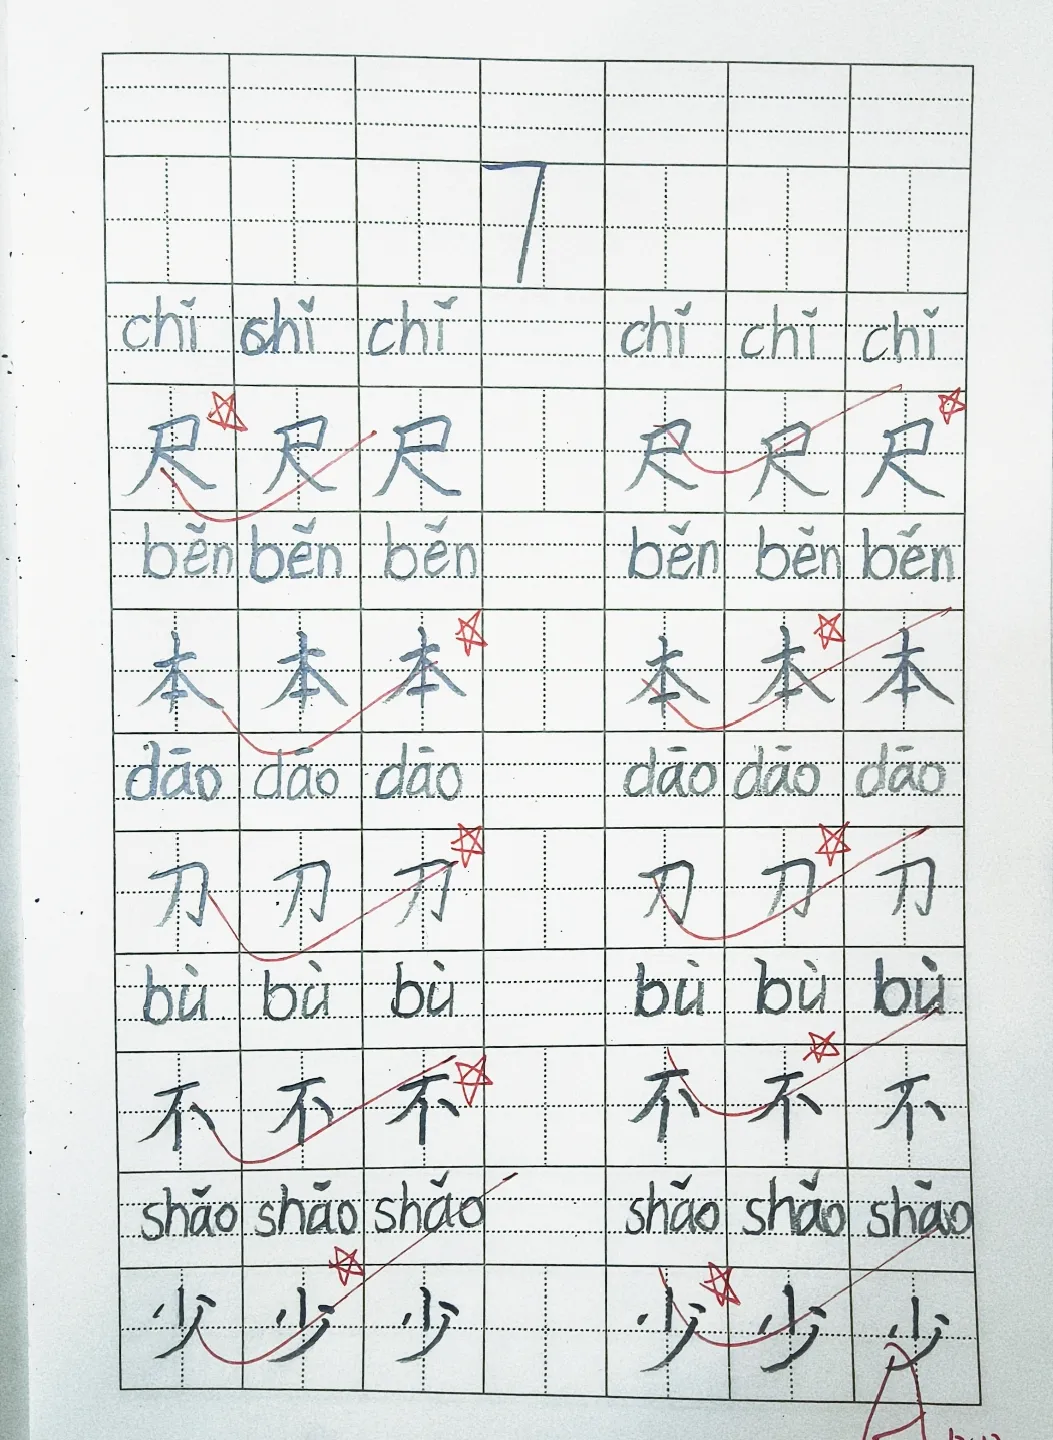 7
chǐ chǐ chǐ chǐ chǐ chǐ
尺 尺 尺 尺 尺 尺
běn běn běn běn běn běn
本 本 本 本 本 本
dāo dāo dāo dāo dāo dāo
刀 刀 刀 刀 刀 刀
bù bù bù bù bù bù
不 不 不 不 不 不
shǎo shǎo shǎo shǎo shǎo shǎo
少 少 少 少 少 少
A